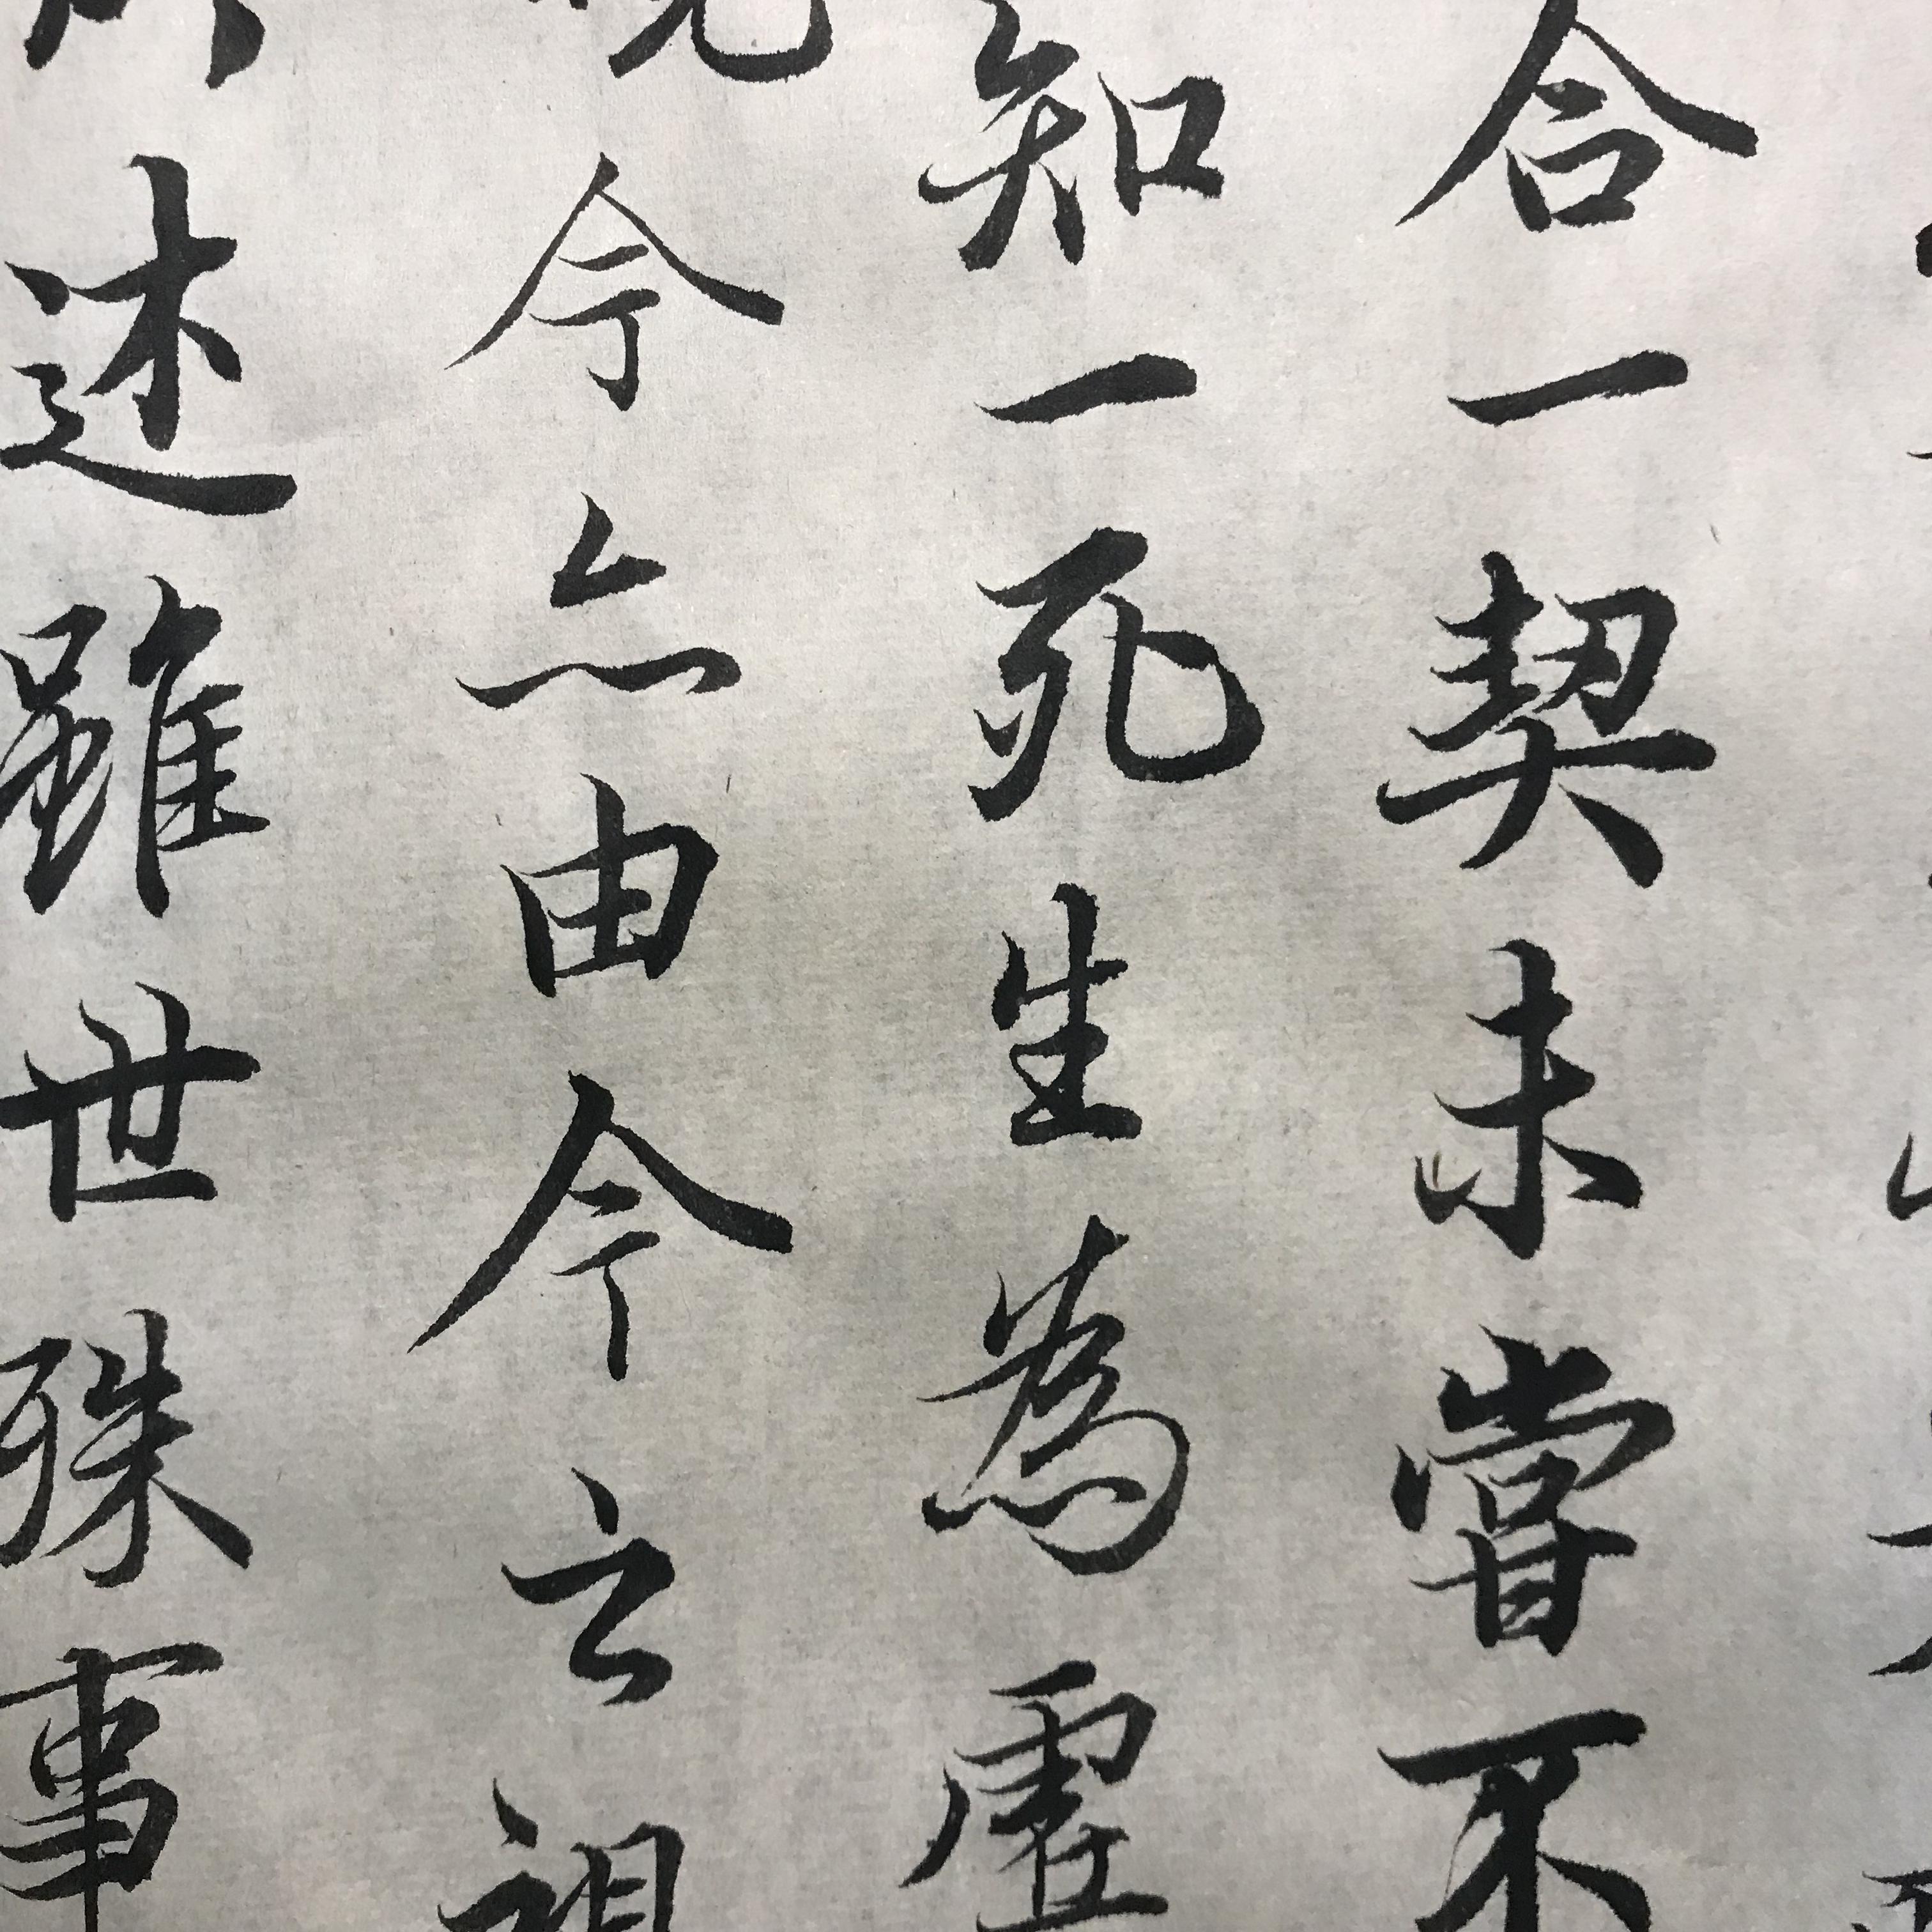 合一契未嘗不
知一死生為虛
視今亦由今之視
述雖世殊事